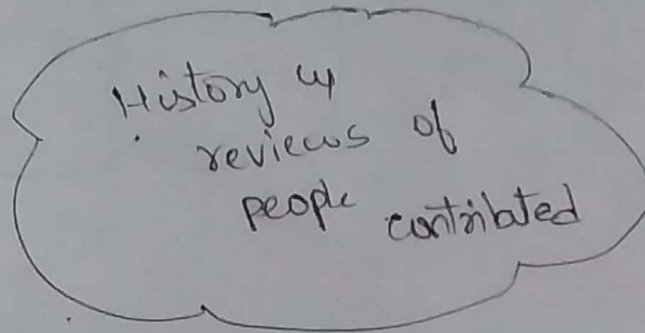 History
reviews of
people contributed